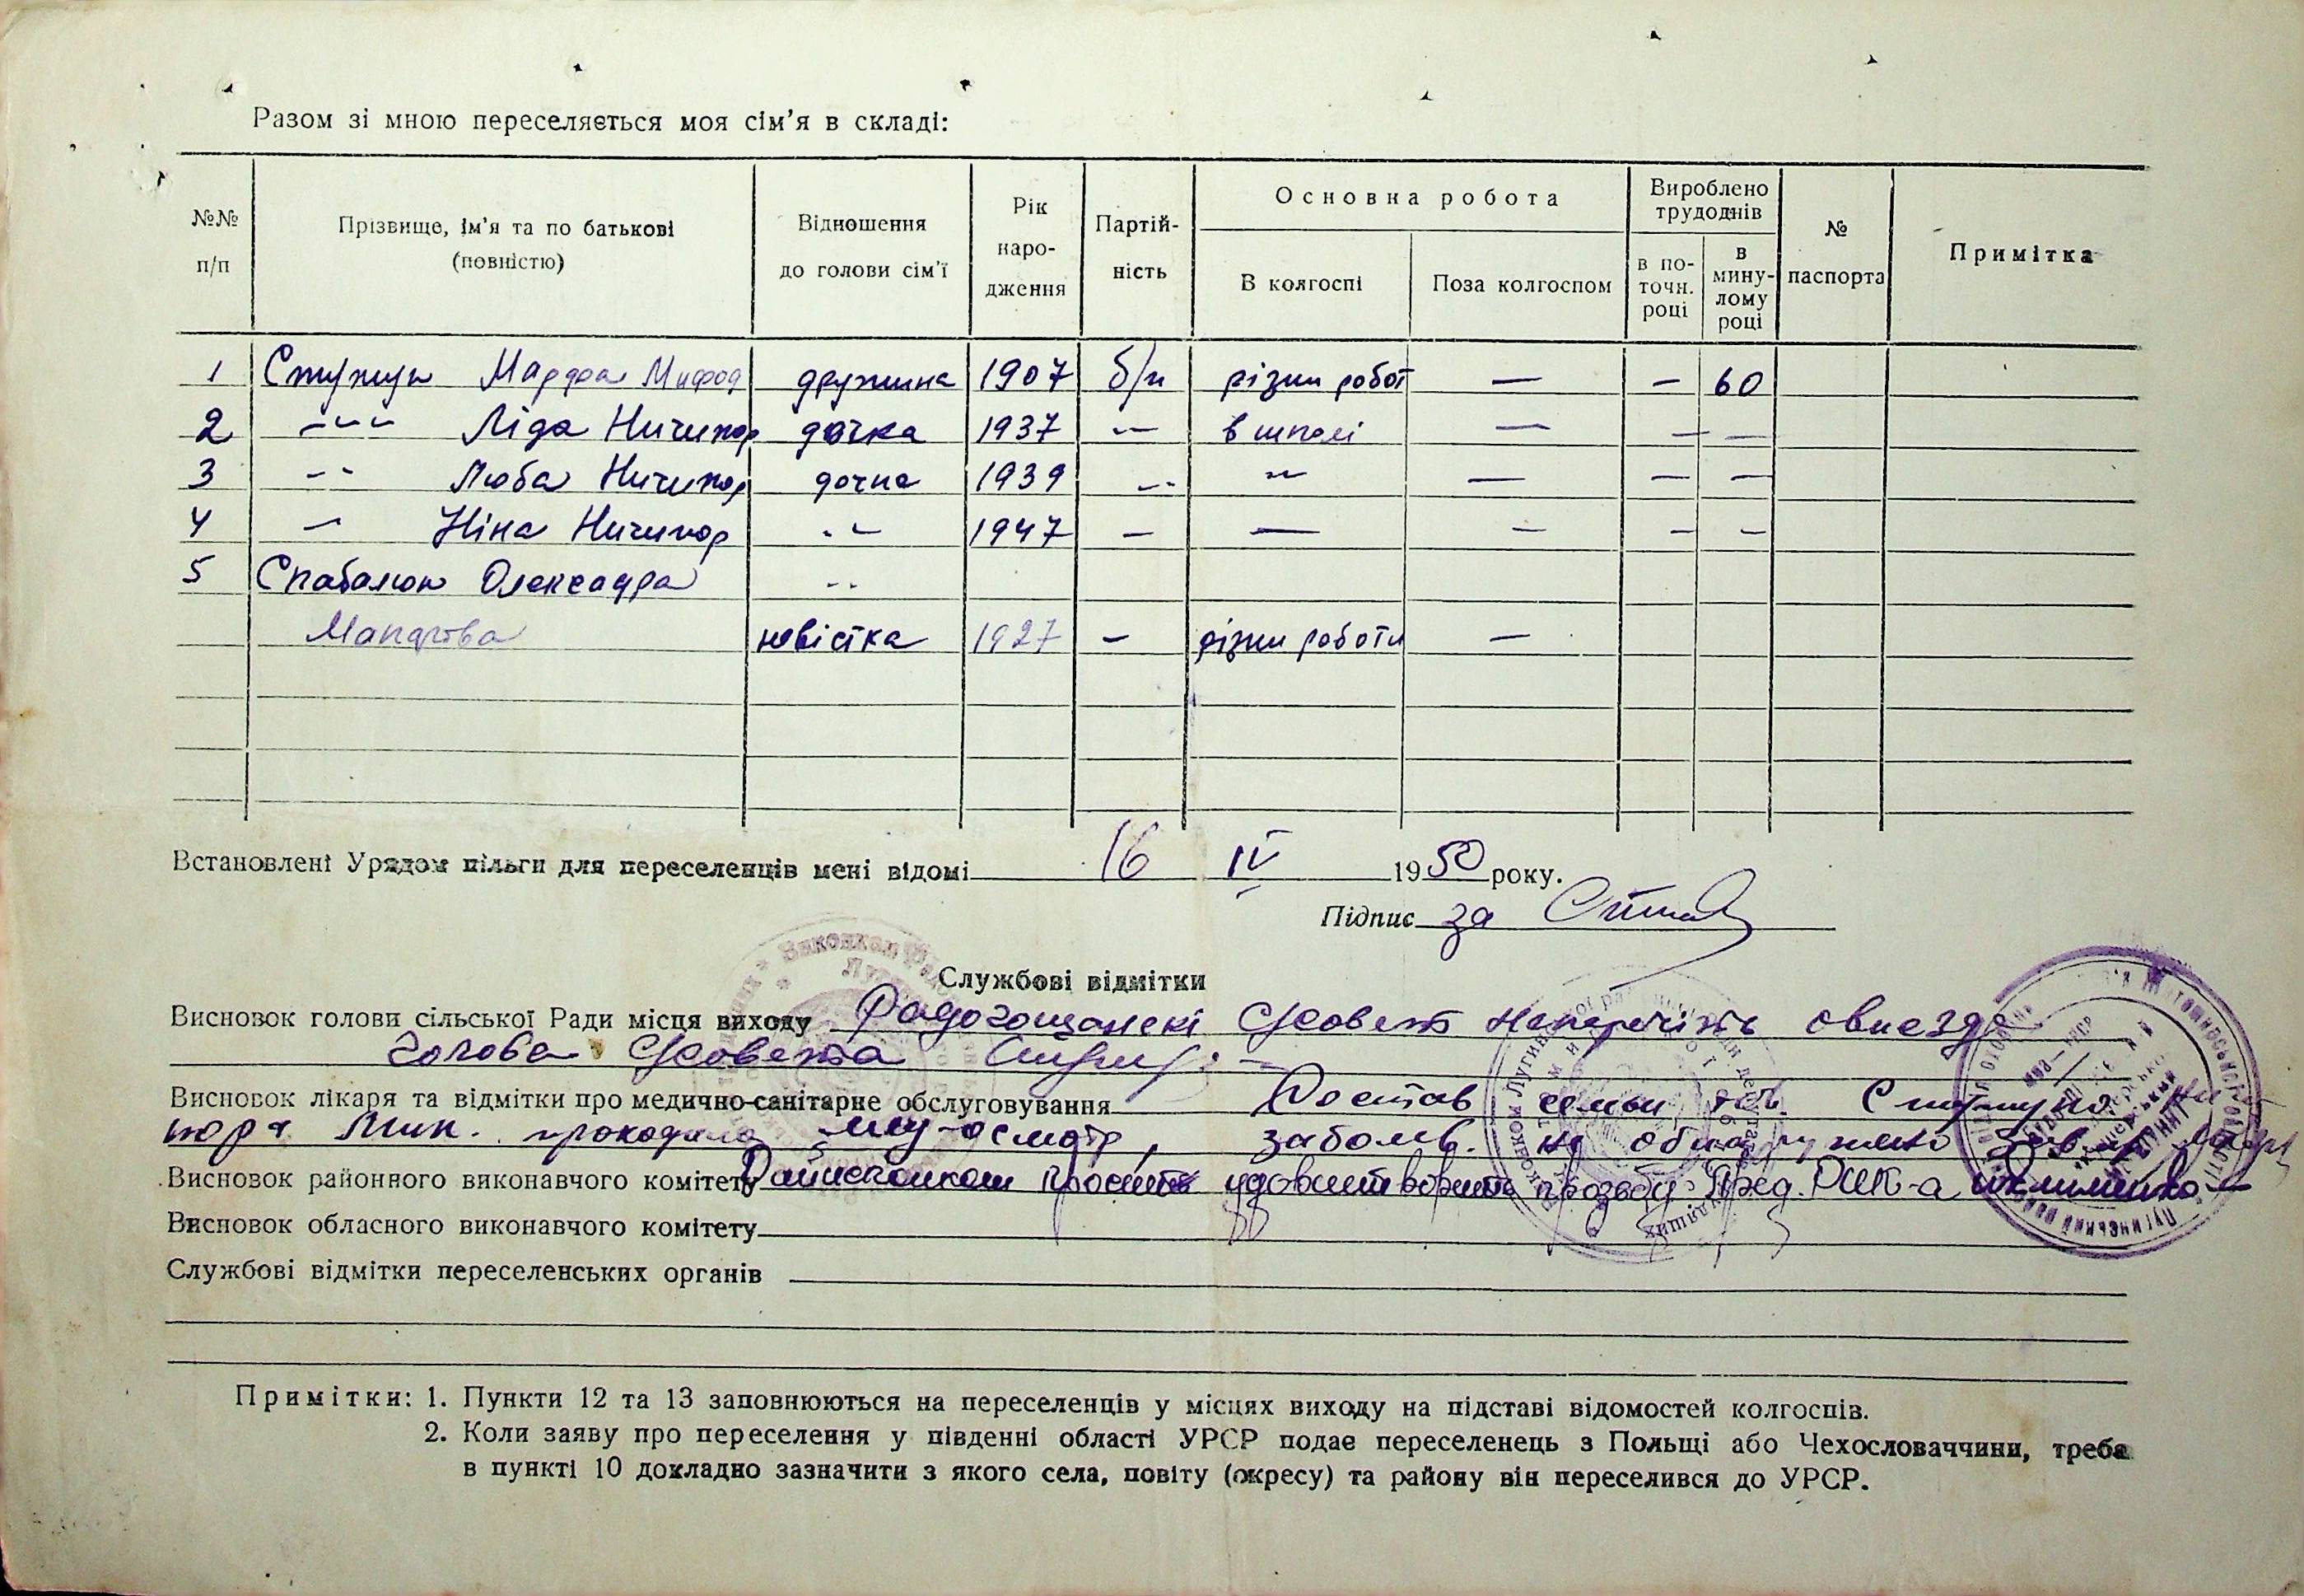 Разом зі мною переселяється моя сім'я в складі:
№№ п/п
Прізвище, ім'я та по батькові (повністю)
Відношення до голови сім'ї
Рік народження
Партійність
Основна робота
В колгоспі
Поза колгоспом
Вироблено трудоднів
в поточн. році
в минулому році
№ паспорта
Примітка
1 Марфа Мифод дружина 1907 б/п різни робот — — 60
2 -"- Ліда Ничипор дочка 1937 -"- в школі — — —
3 -"- Люба Ничипор дочка 1939 -"- -"- — — —
4 -"- Ніна Ничипор -"- 1947 — — — — —
5 Олександра -"-
невістка 1927 — різни роботи —
Встановлені Урядом пільги для переселенців мені відомі 16 IV 1950 року.
Підпис за
Службові відмітки
Висновок голови сільської Ради місця виходу
Голова
Висновок лікаря та відмітки про медично-санітарне обслуговування Состав семьи тов.
мед-осмотр, заболев. не обнаружено
Висновок районного виконавчого комітету Райисполком просит удовлетворить прозьбу Пред. РИК-а
Висновок обласного виконавчого комітету
Службові відмітки переселенських органів
Примітки: 1. Пункти 12 та 13 заповнюються на переселенців у місцях виходу на підставі відомостей колгоспів.
2. Коли заяву про переселення у південні області УРСР подає переселенець з Польщі або Чехословаччини, треба
в пункті 10 докладно зазначити з якого села, повіту (окресу) та району він переселився до УРСР.